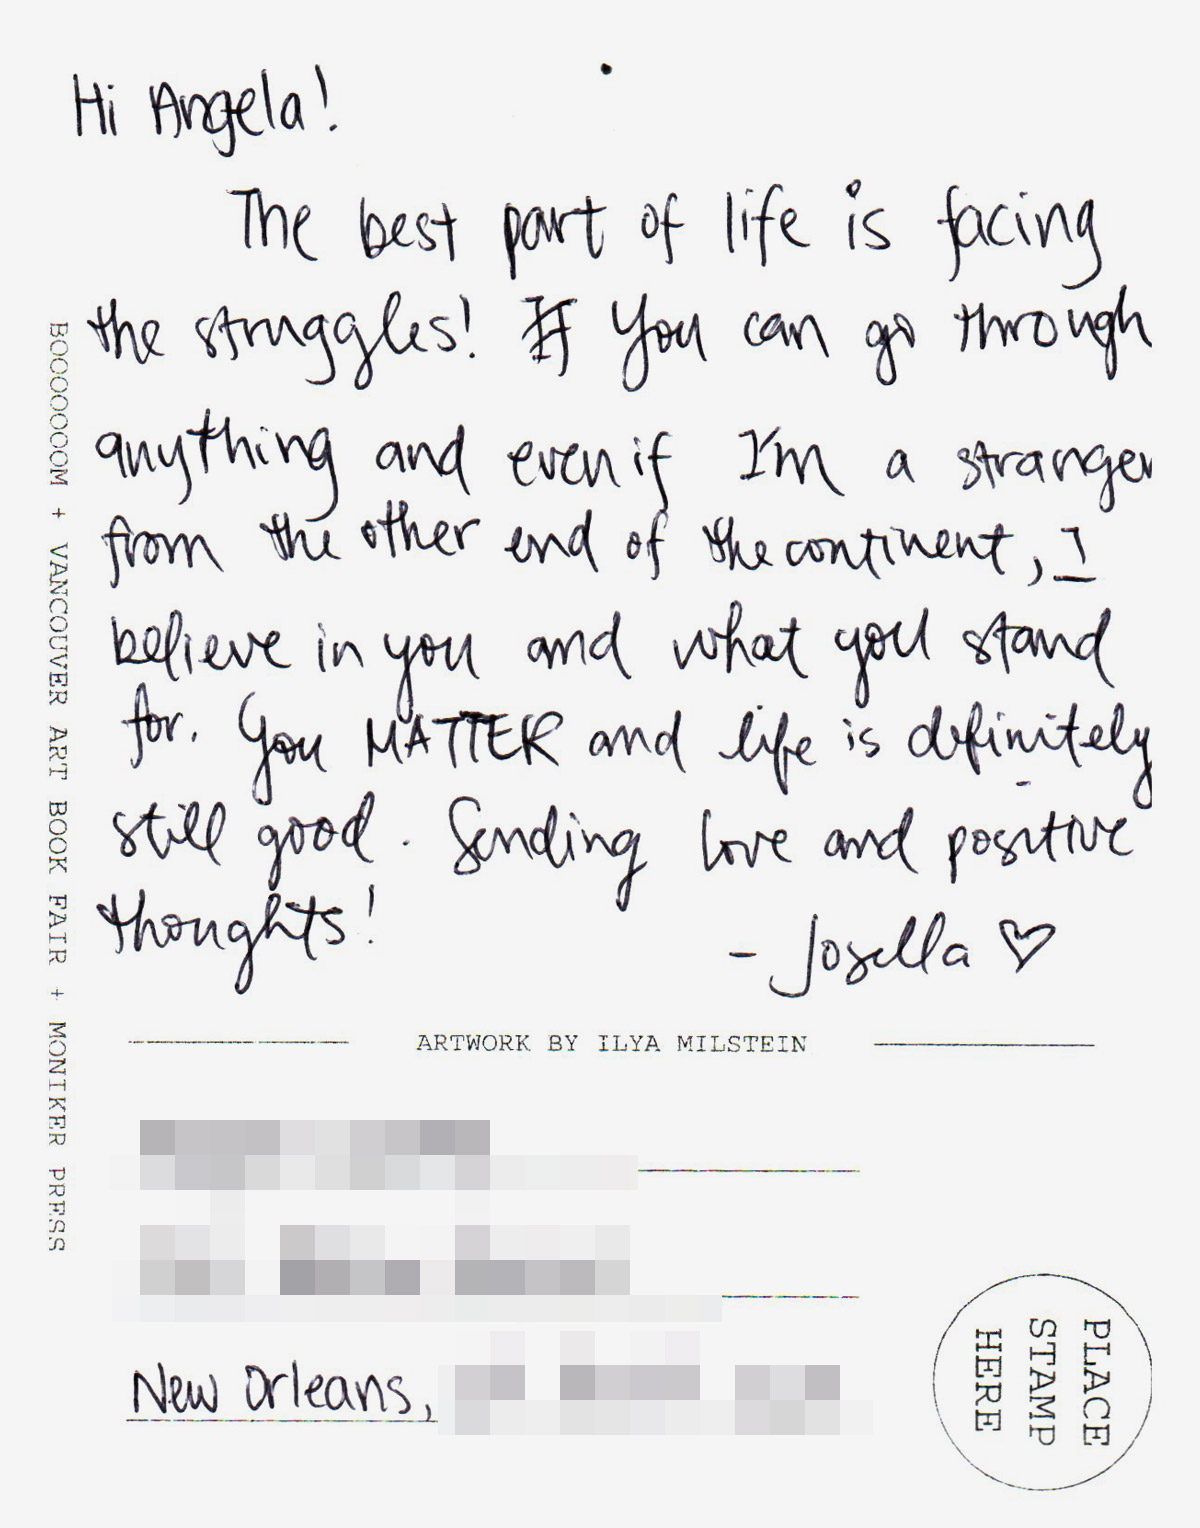 Hi Angela!
The best part of life is facing
the struggles! You can go through
anything and even if I'm a stranger
from the other end of the continent, I
believe in you and what you stand
for. You MATTER and life is definitely
still good. Sending love and positive
thoughts!
- Josella ♡
BOOOOOOOM + VANCOUVER ART BOOK FAIR + MONIKER PRESS
ARTWORK BY ILYA MILSTEIN
New Orleans,
PLACE
STAMP
HERE